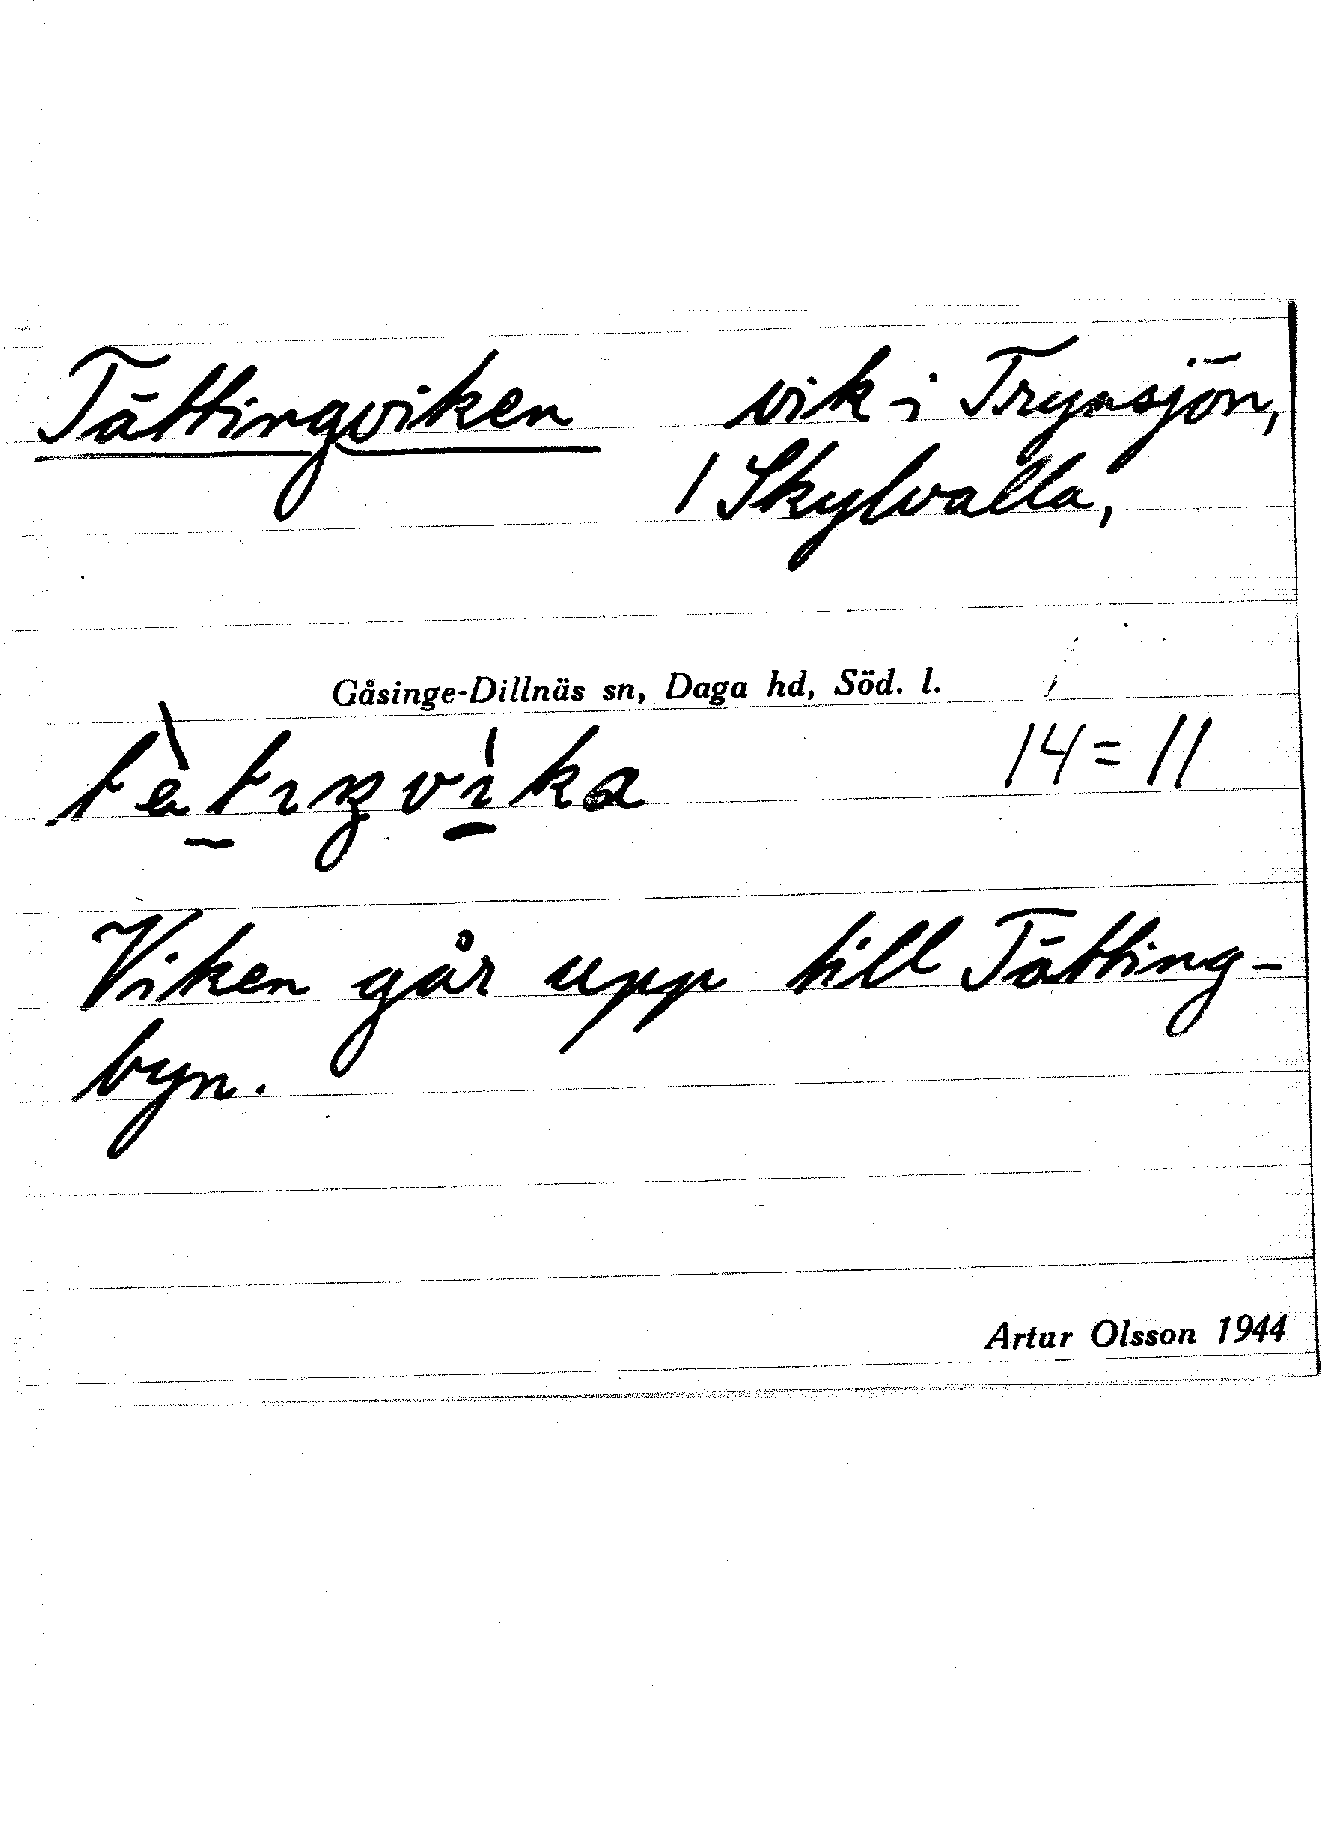 Tättingviken vik i Trynsjön,
/ Skylvalla,
Gåsinge-Dillnäs sn, Daga hd, Söd. l.
tȁtıŋvìka 14 = 11
Viken går upp till Tätting-
byn.
Artur Olsson 1944